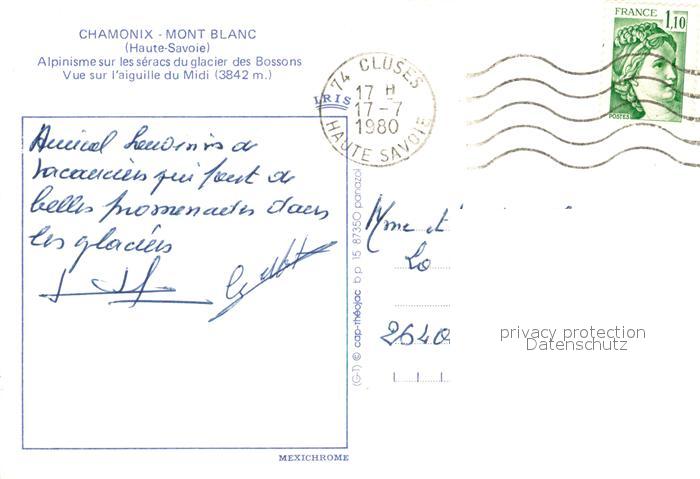 CHAMONIX - MONT BLANC
(Haute-Savoie)
Alpinisme sur les séracs du glacier des Bossons
Vue sur l'aiguille du Midi (3842 m.)
IRIS
74 CLUSES
17 H
17 -7
1980
HAUTE SAVOIE
FRANCE 1,10
POSTES
Amical Souvenirs de
vacanciers qui font de
belles promenades dans
les glaciers
Mme et
Lo
2640
privacy protection
Datenschutz
(G-T) © cap-théojac b p 15 87350 panazol
MEXICHROME